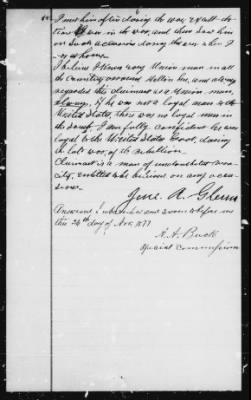 I met him often during the war, & all the
time I was in the war, and then saw him
on such occasions during the war when I
was home.
I believe I knew every Union man in all
the country around Hellin, and always
regarded this claimant as a Union man,
always, if he was not a loyal man to the
United States, there was no loyal man in
the South. I am fully confident he was
loyal to the United States Govt, during
the late war, of the rebellion.
Claimant is a man of undoubted vera-
city, entitled to be believed on any occa-
sion.
Jesse A.
Answered & subscribed and sworn to before me
this 24th day of Nov, 1877
A. A. Buck
Special Commissioner